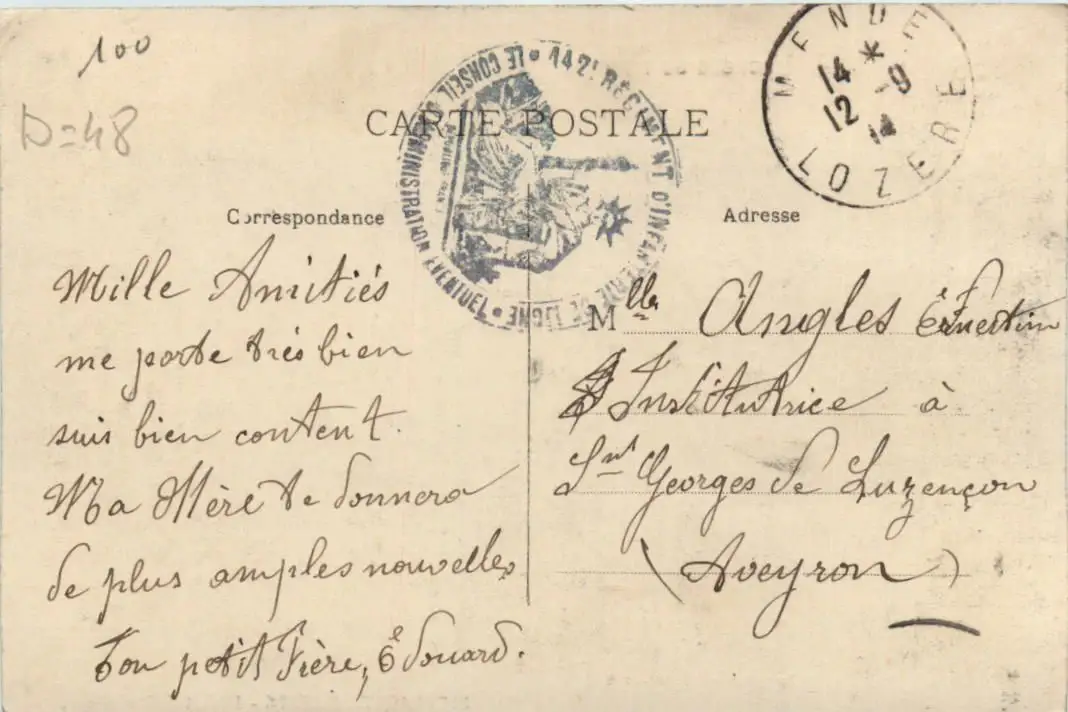 100
D=48
CARTE POSTALE
142E REGIMENT D'INFANTERIE DE LIGNE
LE CONSEIL D'ADMINISTRATION EVENTUEL
MENDE
14 * -9
12 14
LOZERE
Correspondance
Mille Amitiés
me porte très bien
suis bien content.
Ma Mère te donnera
de plus amples nouvelles
Ton petit Frère, Edouard.
Adresse
Mlle Angles Ernestine
Institutrice à
Snt Georges de Luzençon
(Aveyron)